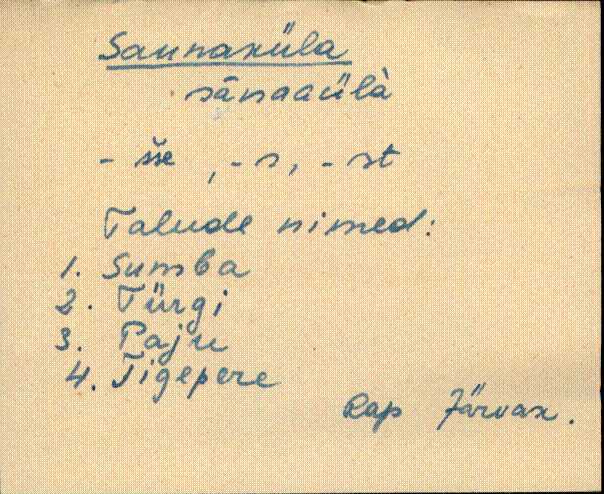 Saunaküla
- sse, -s, -st
Talude nimed:
1. Sumba
2. Türgi
3. Paju
4. Tigepere
Rap Järvak.